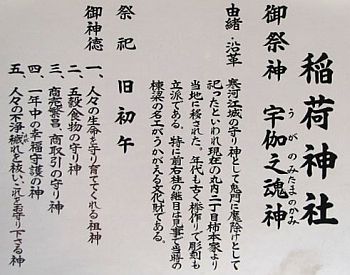 稲荷神社
御祭神 宇伽之魂神
うがのみたまのかみ
由緒・沿革
寒河江城の守り神として鬼門に魔除けとして
祀ったといわれ現在の丸内二丁目柿本家より
当地に移された。年代も古く欅作りで彫刻も
立派である。特に前右柱の継目は見事で当時の
棟梁の名工がうかがえる文化財である。
祭祀 旧初午
御神徳
一、人々の生命を守り育ててくれる祖神
二、五穀食物の守り神
三、商売繁昌、商取引の守り神
四、一年中の幸福守護の神
五、人々の不浄穢れを祓いこれをお守り下さる神